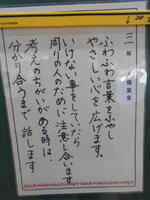 三年
ふわふわ言葉をふやし
やさしい心を広げます。
いけない事をしていたら
周りの人のために注意し合います
考えのちがいがある時は、
分かり合うまで話します